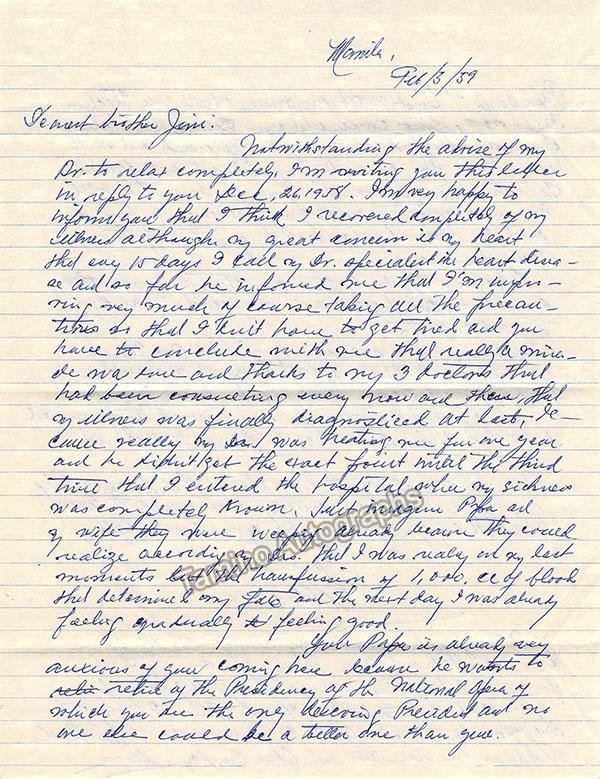 Manila,
Feb/3/59
Dearest brother Jimi:
Notwithstanding the advise of my
Dr. to relax completely, I'm writing you this letter
in reply to your Dec, 26, 1958. I'm very happy to
inform you that I think I recovered completely of my
illness although my great concern is my heart
that every 15 days I call my Dr. specialist in heart disea-
se and so far he informed me that I'm impro-
ving very much of course taking all the precau-
tions so that I don't have to get tired and you
have to conclude with me that really a mira-
cle was done and thanks to my 3 doctors that
had been consulting every now and then, that
my illness was finally diagnosticed at last, be-
cause really my Dr. was treating me for one year
and he didn't get the exact point until the third
time that I entered the hospital when my sickness
was completely known. Just imagine Papa and
my wife they were weeping already because they could
realize according that I was really on my last
moments but the transfussion of 1,000. cc of blood
that determined my fate and the next day I was already
feeling gradually feeling good.
Your Papa is already very
anxious of your coming here because he wants to
retire of the Presidency of the National Opera of
which you are the only deserving President and no
one else could be a better one than you.
Tamino Autographs